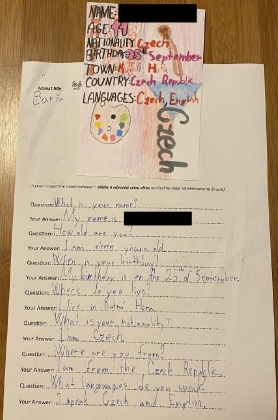 NAME:
AGE:
NATIONALITY: Czech
BIRTHDAY: 25th September
TOWN:
COUNTRY: Czech Republic
LANGUAGES: Czech, English
Czech
About Me
Question: What is your name?
Your Answer: My name is
Question: How old are you?
Your Answer: I am eleven years old.
Question: When is your birthday?
Your Answer: My birthday is on the 25th of September.
Question: Where do you live?
Your Answer: I live in
Question: What is your nationality?
Your Answer: I am Czech.
Question: Where are you from?
Your Answer: I am from the Czech Republic.
Question: What languages do you speak
Your Answer: I speak Czech and English.